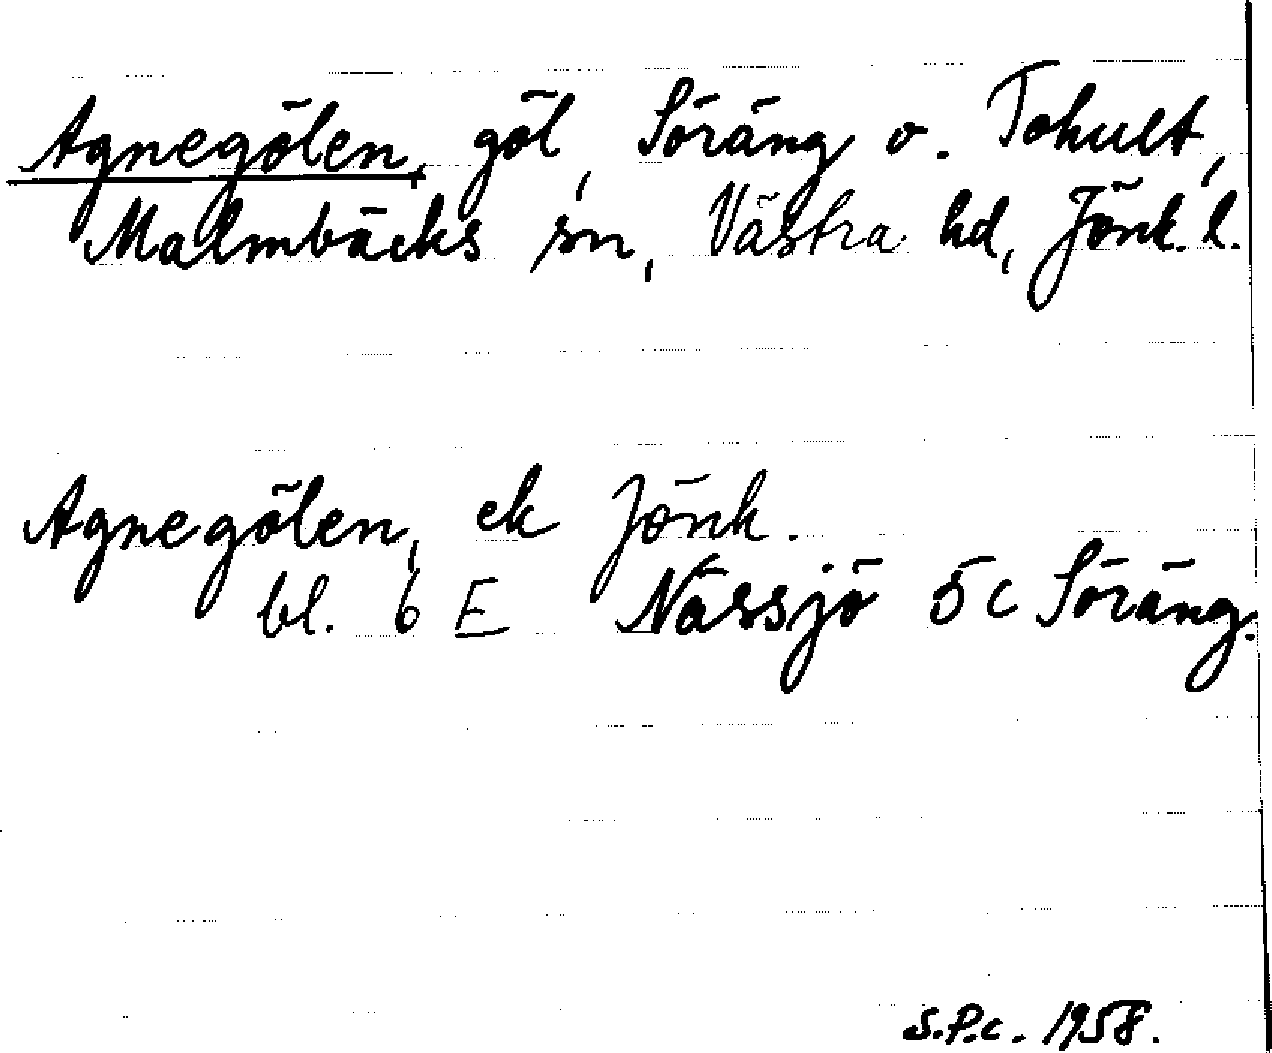 Agnegölen, göl, Söräng o. Tohult,
Malmbäcks sn, Västra hd, Jönk. l.
Agnegölen, ek Jönk.
bl. 6 E Nässjö 5c Söräng.
S.P.c. 1958.